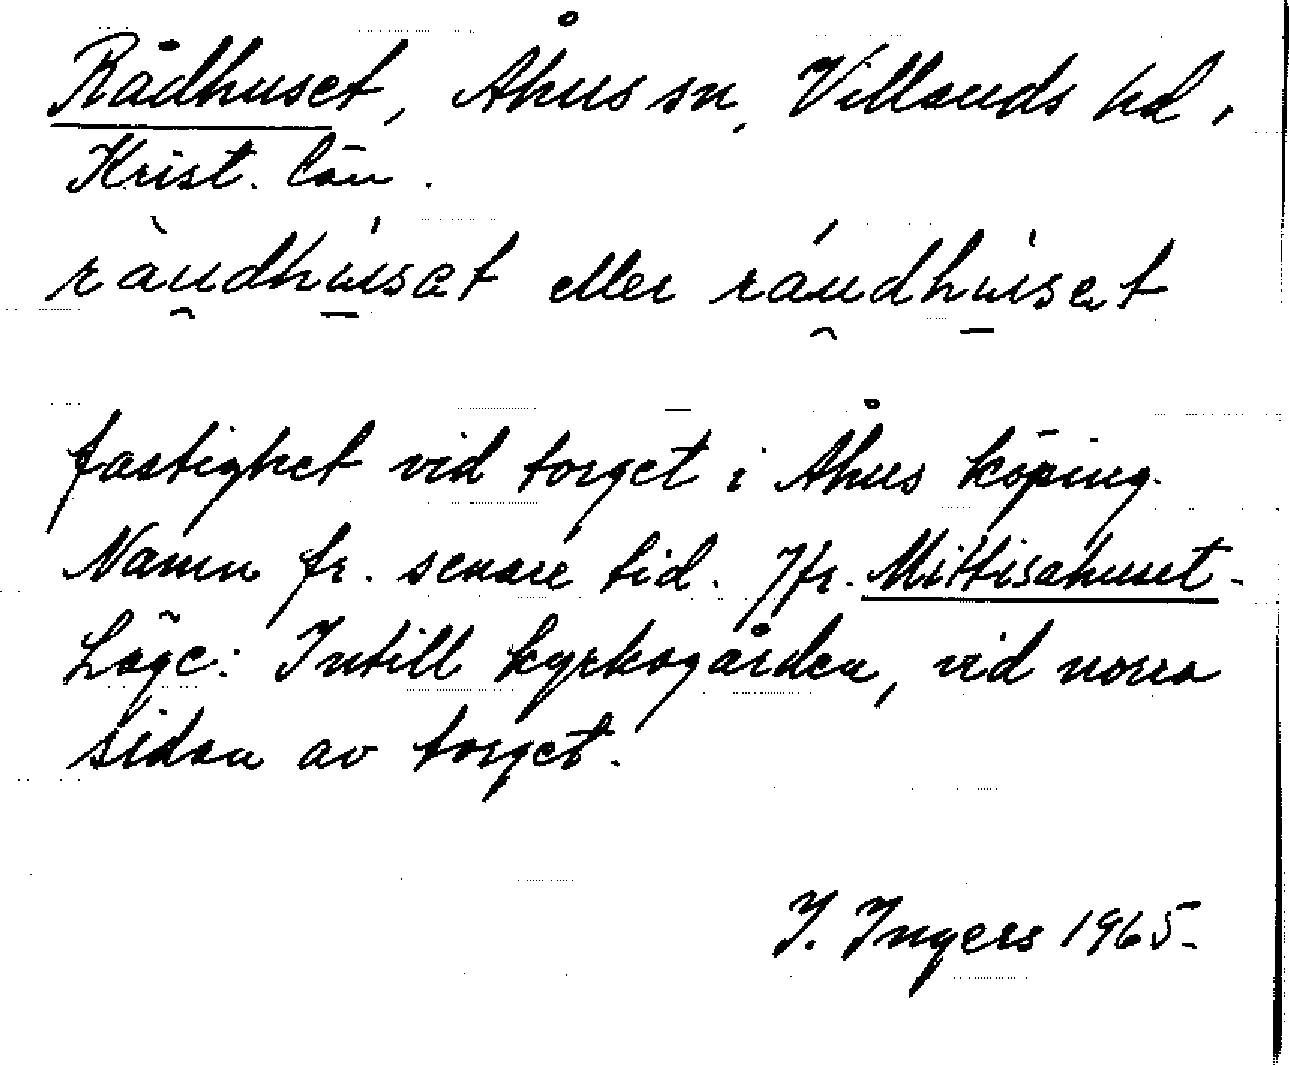 Rådhuset, Åhus sn, Villands hd,
Krist. län.
ràu̯dhú̱sat eller ráu̯dhu̱̍sat
fastighet vid torget i Åhus köping.
Namn fr. senare tid. Jfr. Mittisahuset.
Läge: Intill kyrkogården, vid norra
sidan av torget.
I. Ingers 1965.